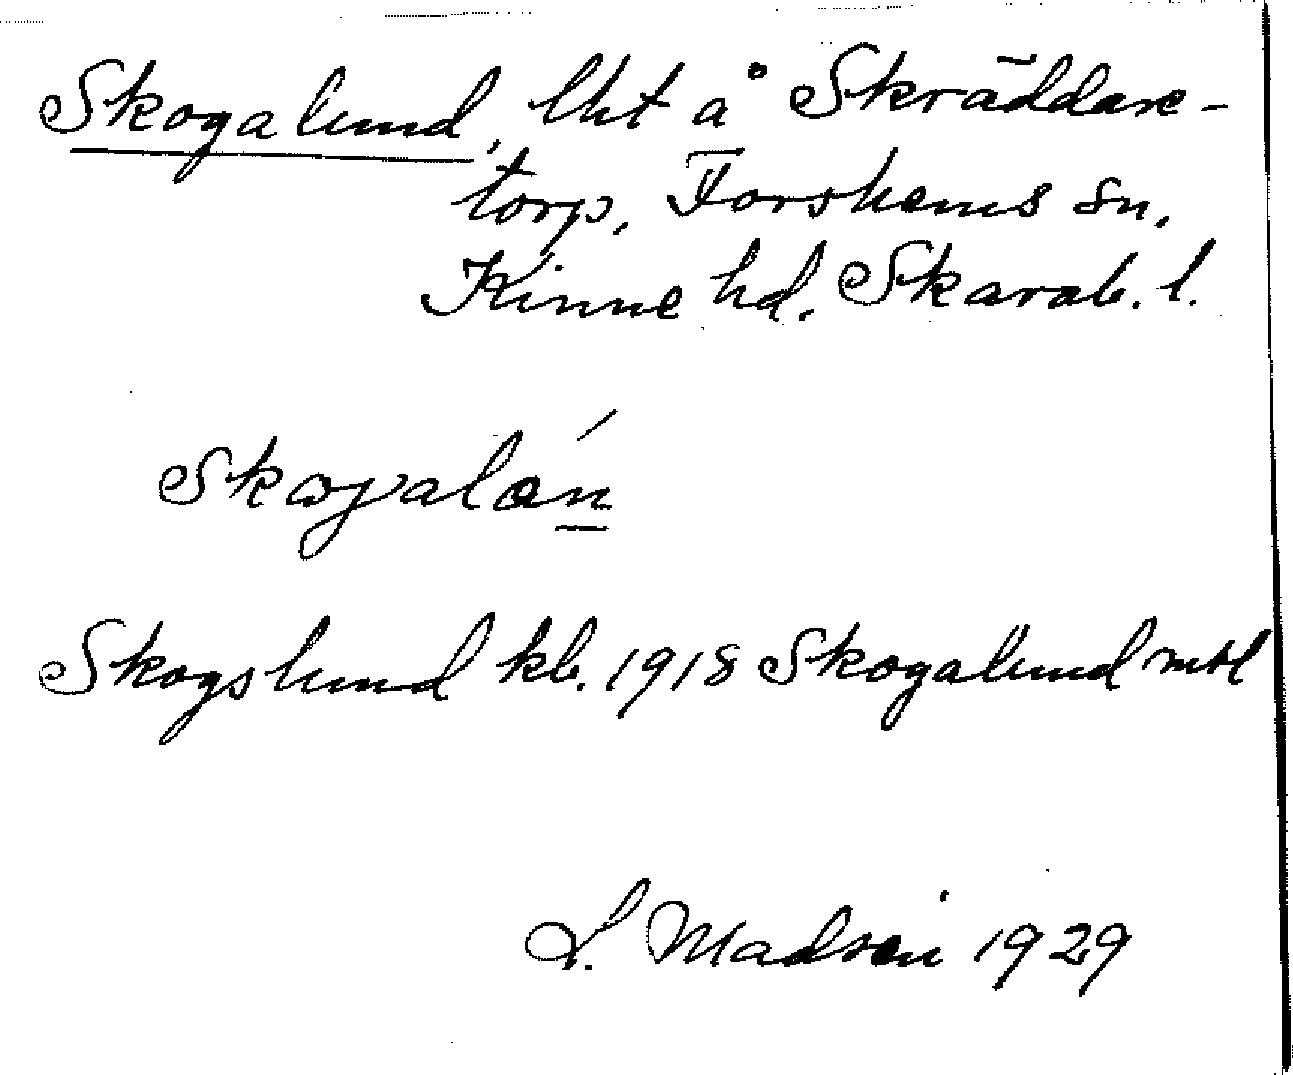 Skogalund, lht å Skräddare-
torp, Forshems sn,
Kinne hd. Skarab. l.
Skogslund kb. 1918 Skogalund mtl
1929